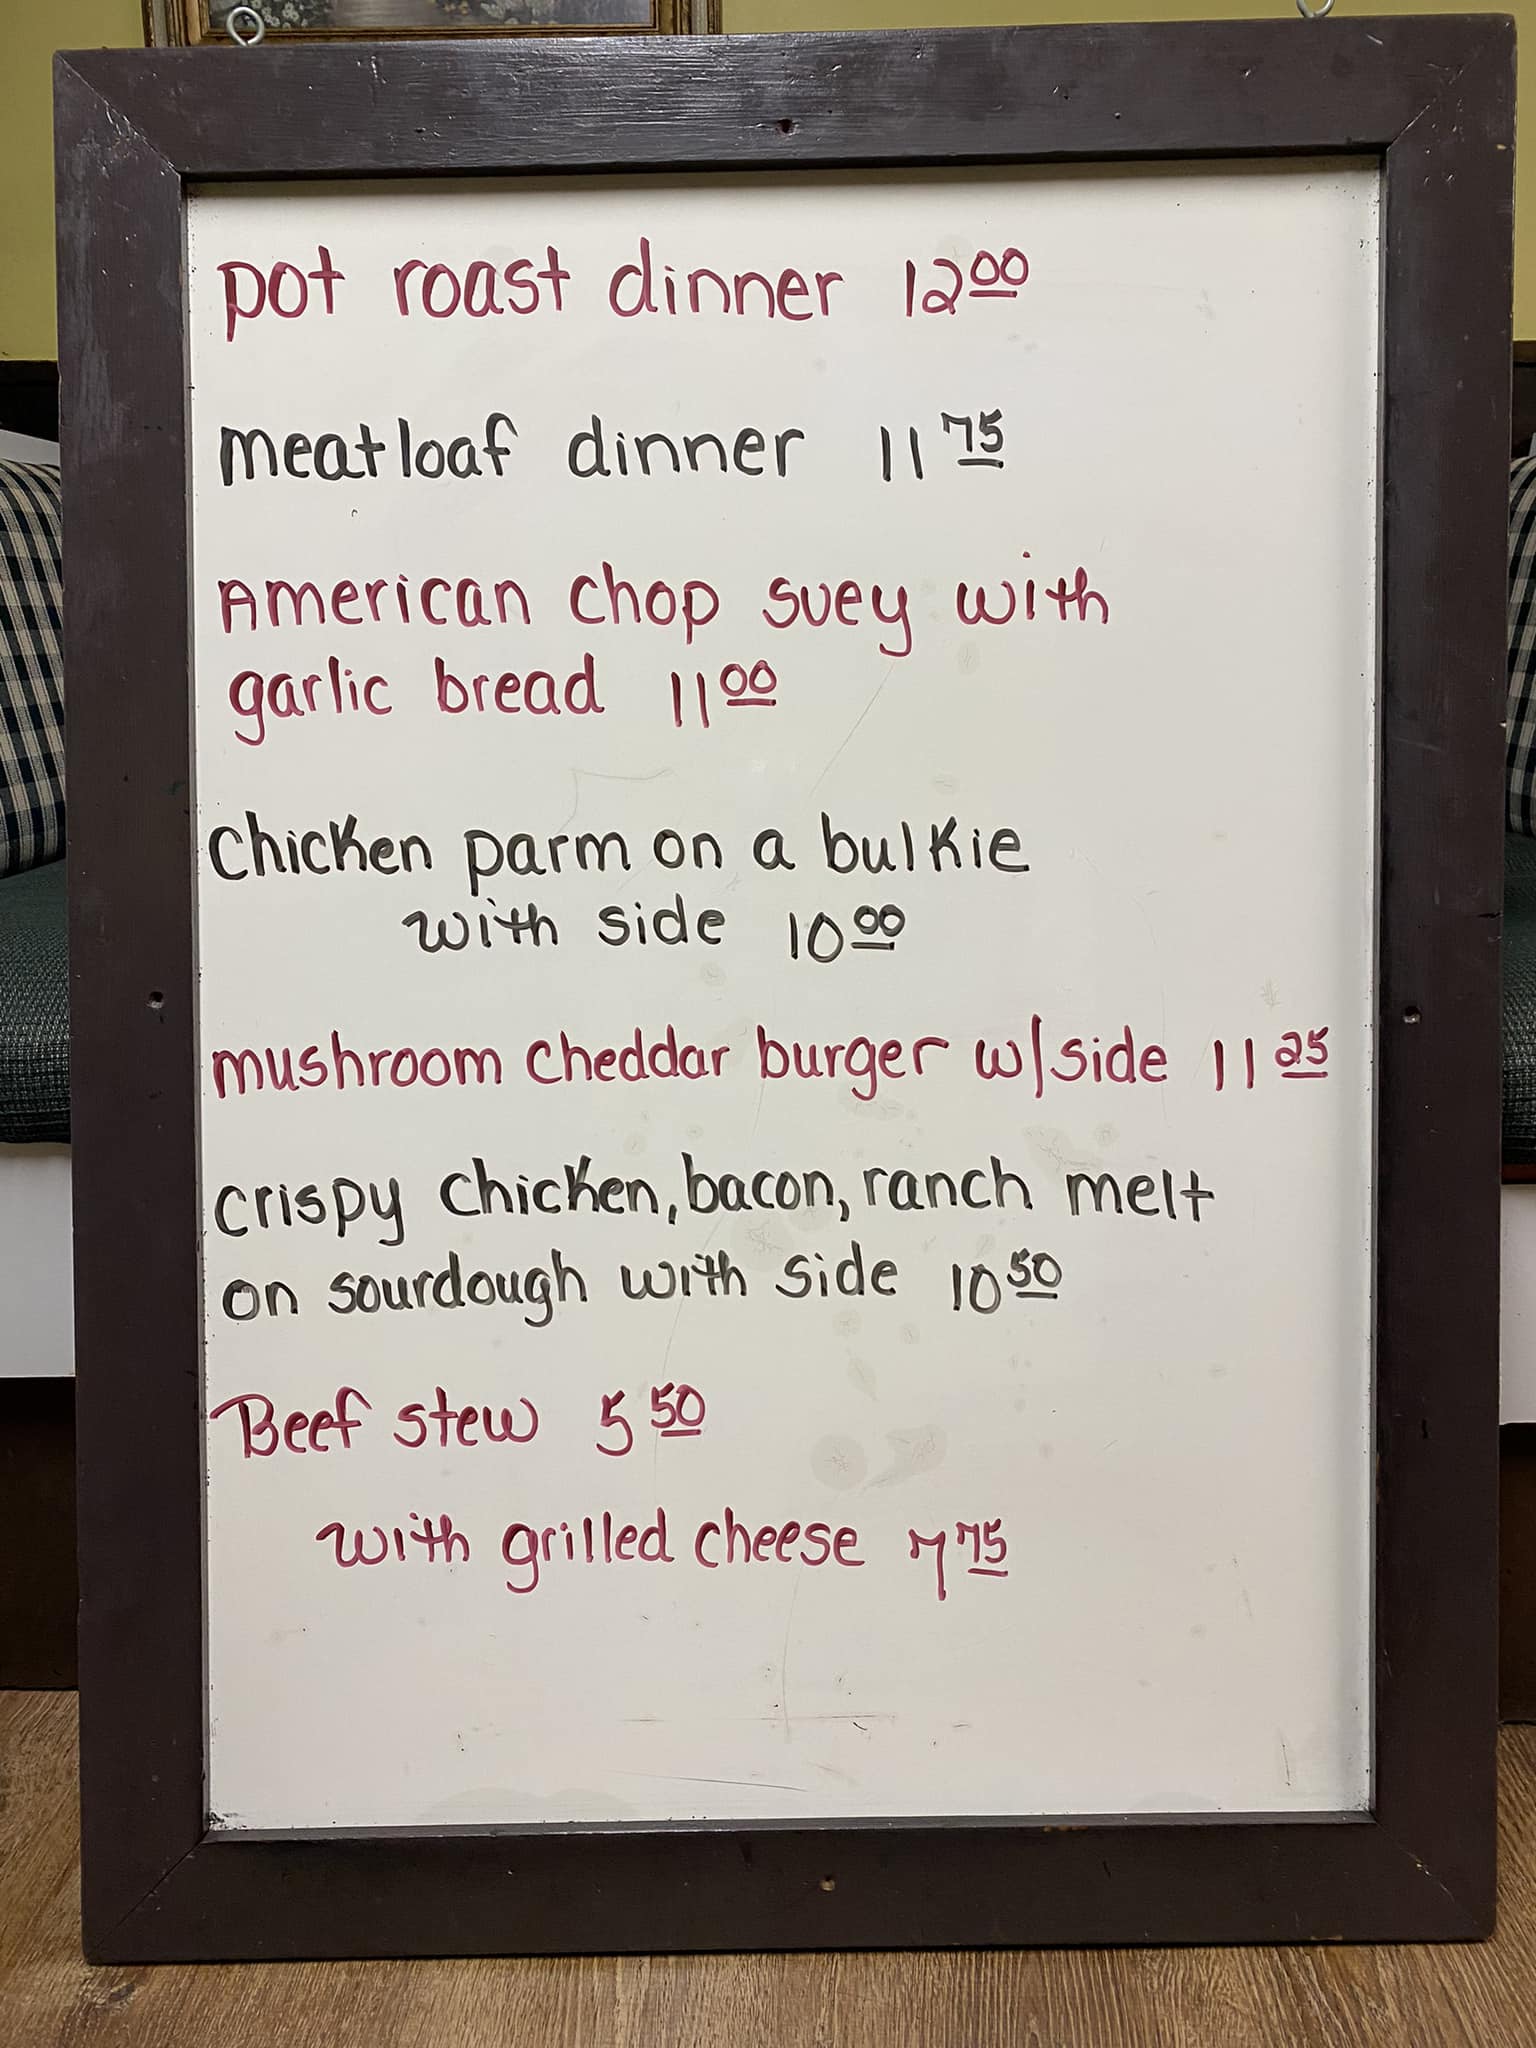 pot roast dinner 12 00
meatloaf dinner 11 75
American chop suey with
garlic bread 11 00
chicken parm on a bulkie
with side 10 00
mushroom cheddar burger w/side 11 25
crispy chicken, bacon, ranch melt
on sourdough with side 10 50
Beef stew 5 50
with grilled cheese 7 75